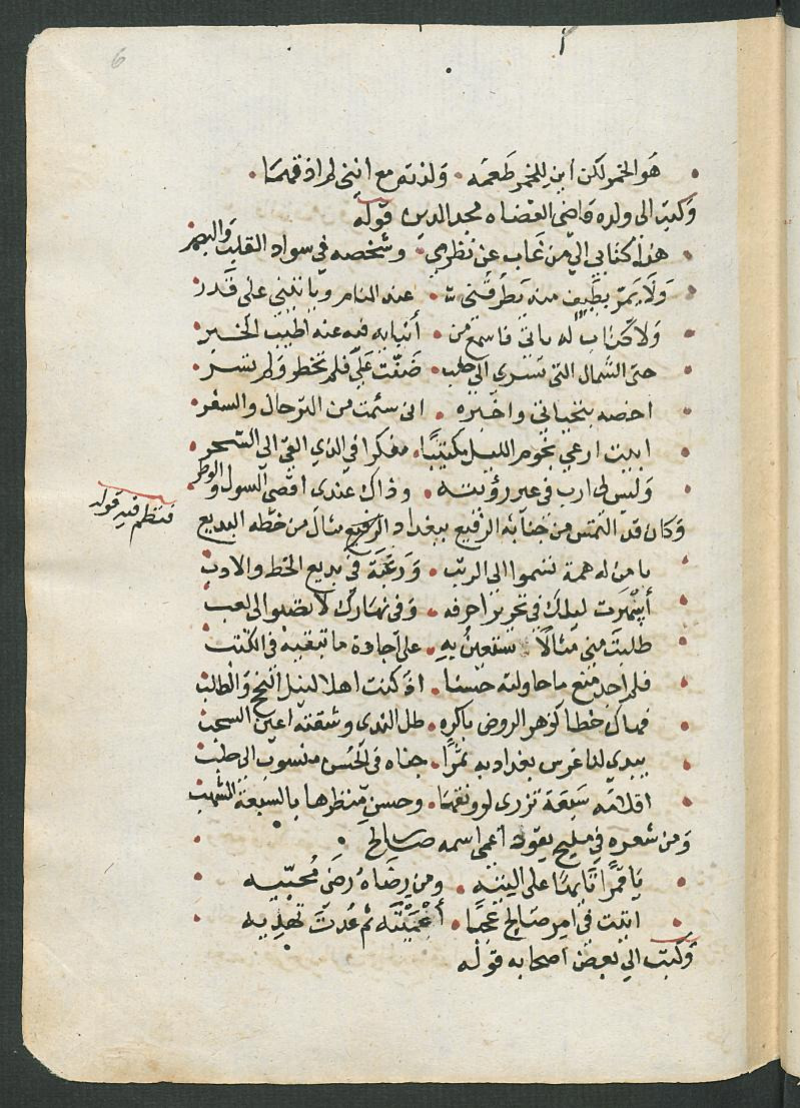 6
هو الخمر لكن اين للخمر طعمه . ولذته مع انني لم اذقهما
وكتب الى ولده قاضي القضاه مجد الدين قوله
هذا كتابي الى من غاب عن نظري . وشخصه في سواد القلب والبصر
ولا يمر بطيف منه يطرقني . عند المنام ويا تيني على قدر
ولا كتاب له ياتي فاسمع من . أنبايه فيه عنه اطيب الخبر
حتى الشمال التي تسري الى حلب . ضنت علي فلم تخطر ولم تسر
اخصه بتحياتي واخبره . اني سئمت من الترحال والسفر
ابيت ارعي نجوم الليل مكتيبا . مفكرا في الذي القى الى السحر
وليس لي ارب في غير رؤيته . وذاك عندي اقصى السول والوطر
وكان قد التمس من جنابه الرفيع ببغداد الرفيع مثال من خطه البديع
فنظم فيه قوله
يا من له همة تسموا الى الرتب . ورغبة في بديع الخط والادب
أسهرت ليلك في تحرير احرفه . وفي نهارك لا تصبو الى لعب
طلبت مني مثالا تستعين به . على اجادة ما تبغيه في الكتب
فلم اجد منع ما حاولته حسنا . اذ كنت اهلا لنيل النجح والطلب
فهاك خطا كزهر الروض باكره . طل الندى وسقته اعين السحب
يبدي لنا غرس بغداد به ثمرا . جناه في الحسن منسوب الى حلب
اقلامه سبعة تزرى لرونقها . وحسن منظرها بالسبعة الشهب
ومن شعره في مليح يقود اعمى اسمه صالح
يا قمرا تايها على التيه . ومن رضاه رضى محبيه
اتيت في امر صالح عجبا . أعميته ثم عدت تهديه
وكتب الى بعض اصحابه قوله